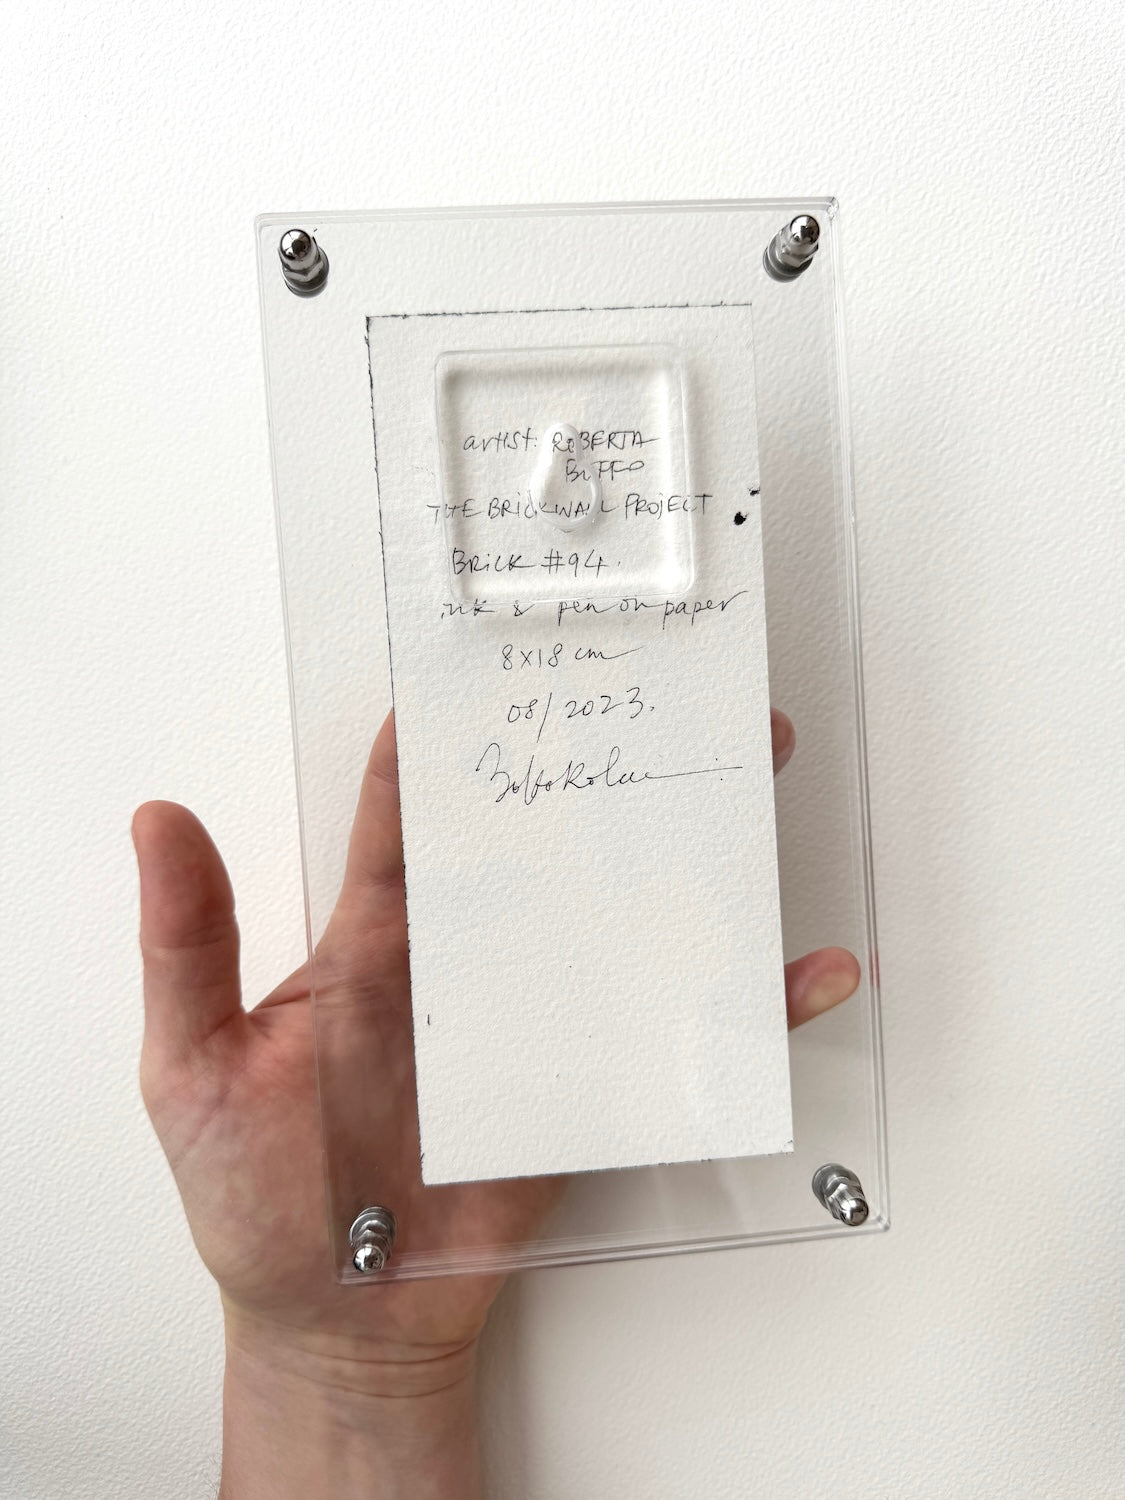 artist: ROBERTA
BUFFO
THE BRICKWALL PROJECT
BRICK #94.
ink & pen on paper
8x18 cm
08/2023.